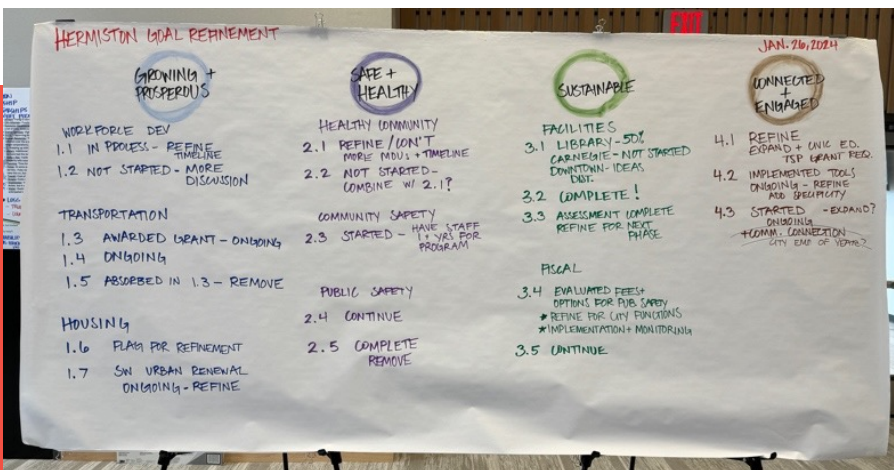 HERMISTON GOAL REFINEMENT
EXIT
JAN. 26, 2024
GROWING +
PROSPEROUS
WORKFORCE DEV
1.1 IN PROCESS - REFINE
TIMELINE
1.2 NOT STARTED - MORE
DISCUSSION
TRANSPORTATION
1.3 AWARDED GRANT - ONGOING
1.4 ONGOING
1.5 ABSORBED IN 1.3 - REMOVE
HOUSING
1.6 FLAG FOR REFINEMENT
1.7 SW URBAN RENEWAL
ONGOING - REFINE
SAFE +
HEALTHY
HEALTHY COMMUNITY
2.1 REFINE / CON'T
MORE MOUS + TIMELINE
2.2 NOT STARTED -
COMBINE W/ 2.1?
COMMUNITY SAFETY
2.3 STARTED - HAVE STAFF
1+ YRS FOR
PROGRAM
PUBLIC SAFETY
2.4 CONTINUE
2.5 COMPLETE
REMOVE
SUSTAINABLE
FACILITIES
3.1 LIBRARY - 50%
CARNEGIE - NOT STARTED
DOWNTOWN - IDEAS
DIST.
3.2 COMPLETE!
3.3 ASSESSMENT COMPLETE
REFINE FOR NEXT
PHASE
FISCAL
3.4 EVALUATED FEES +
OPTIONS FOR PUB SAFETY
* REFINE FOR CITY FUNCTIONS
* IMPLEMENTATION + MONITORING
3.5 CONTINUE
CONNECTED
+
ENGAGED
4.1 REFINE
EXPAND + CIVIC ED.
TSP GRANT REQ.
4.2 IMPLEMENTED TOOLS
ONGOING - REFINE
ADD SPECIFICITY
4.3 STARTED - EXPAND?
ONGOING
+ COMM. CONNECTION
CITY EMP OF YEAR?